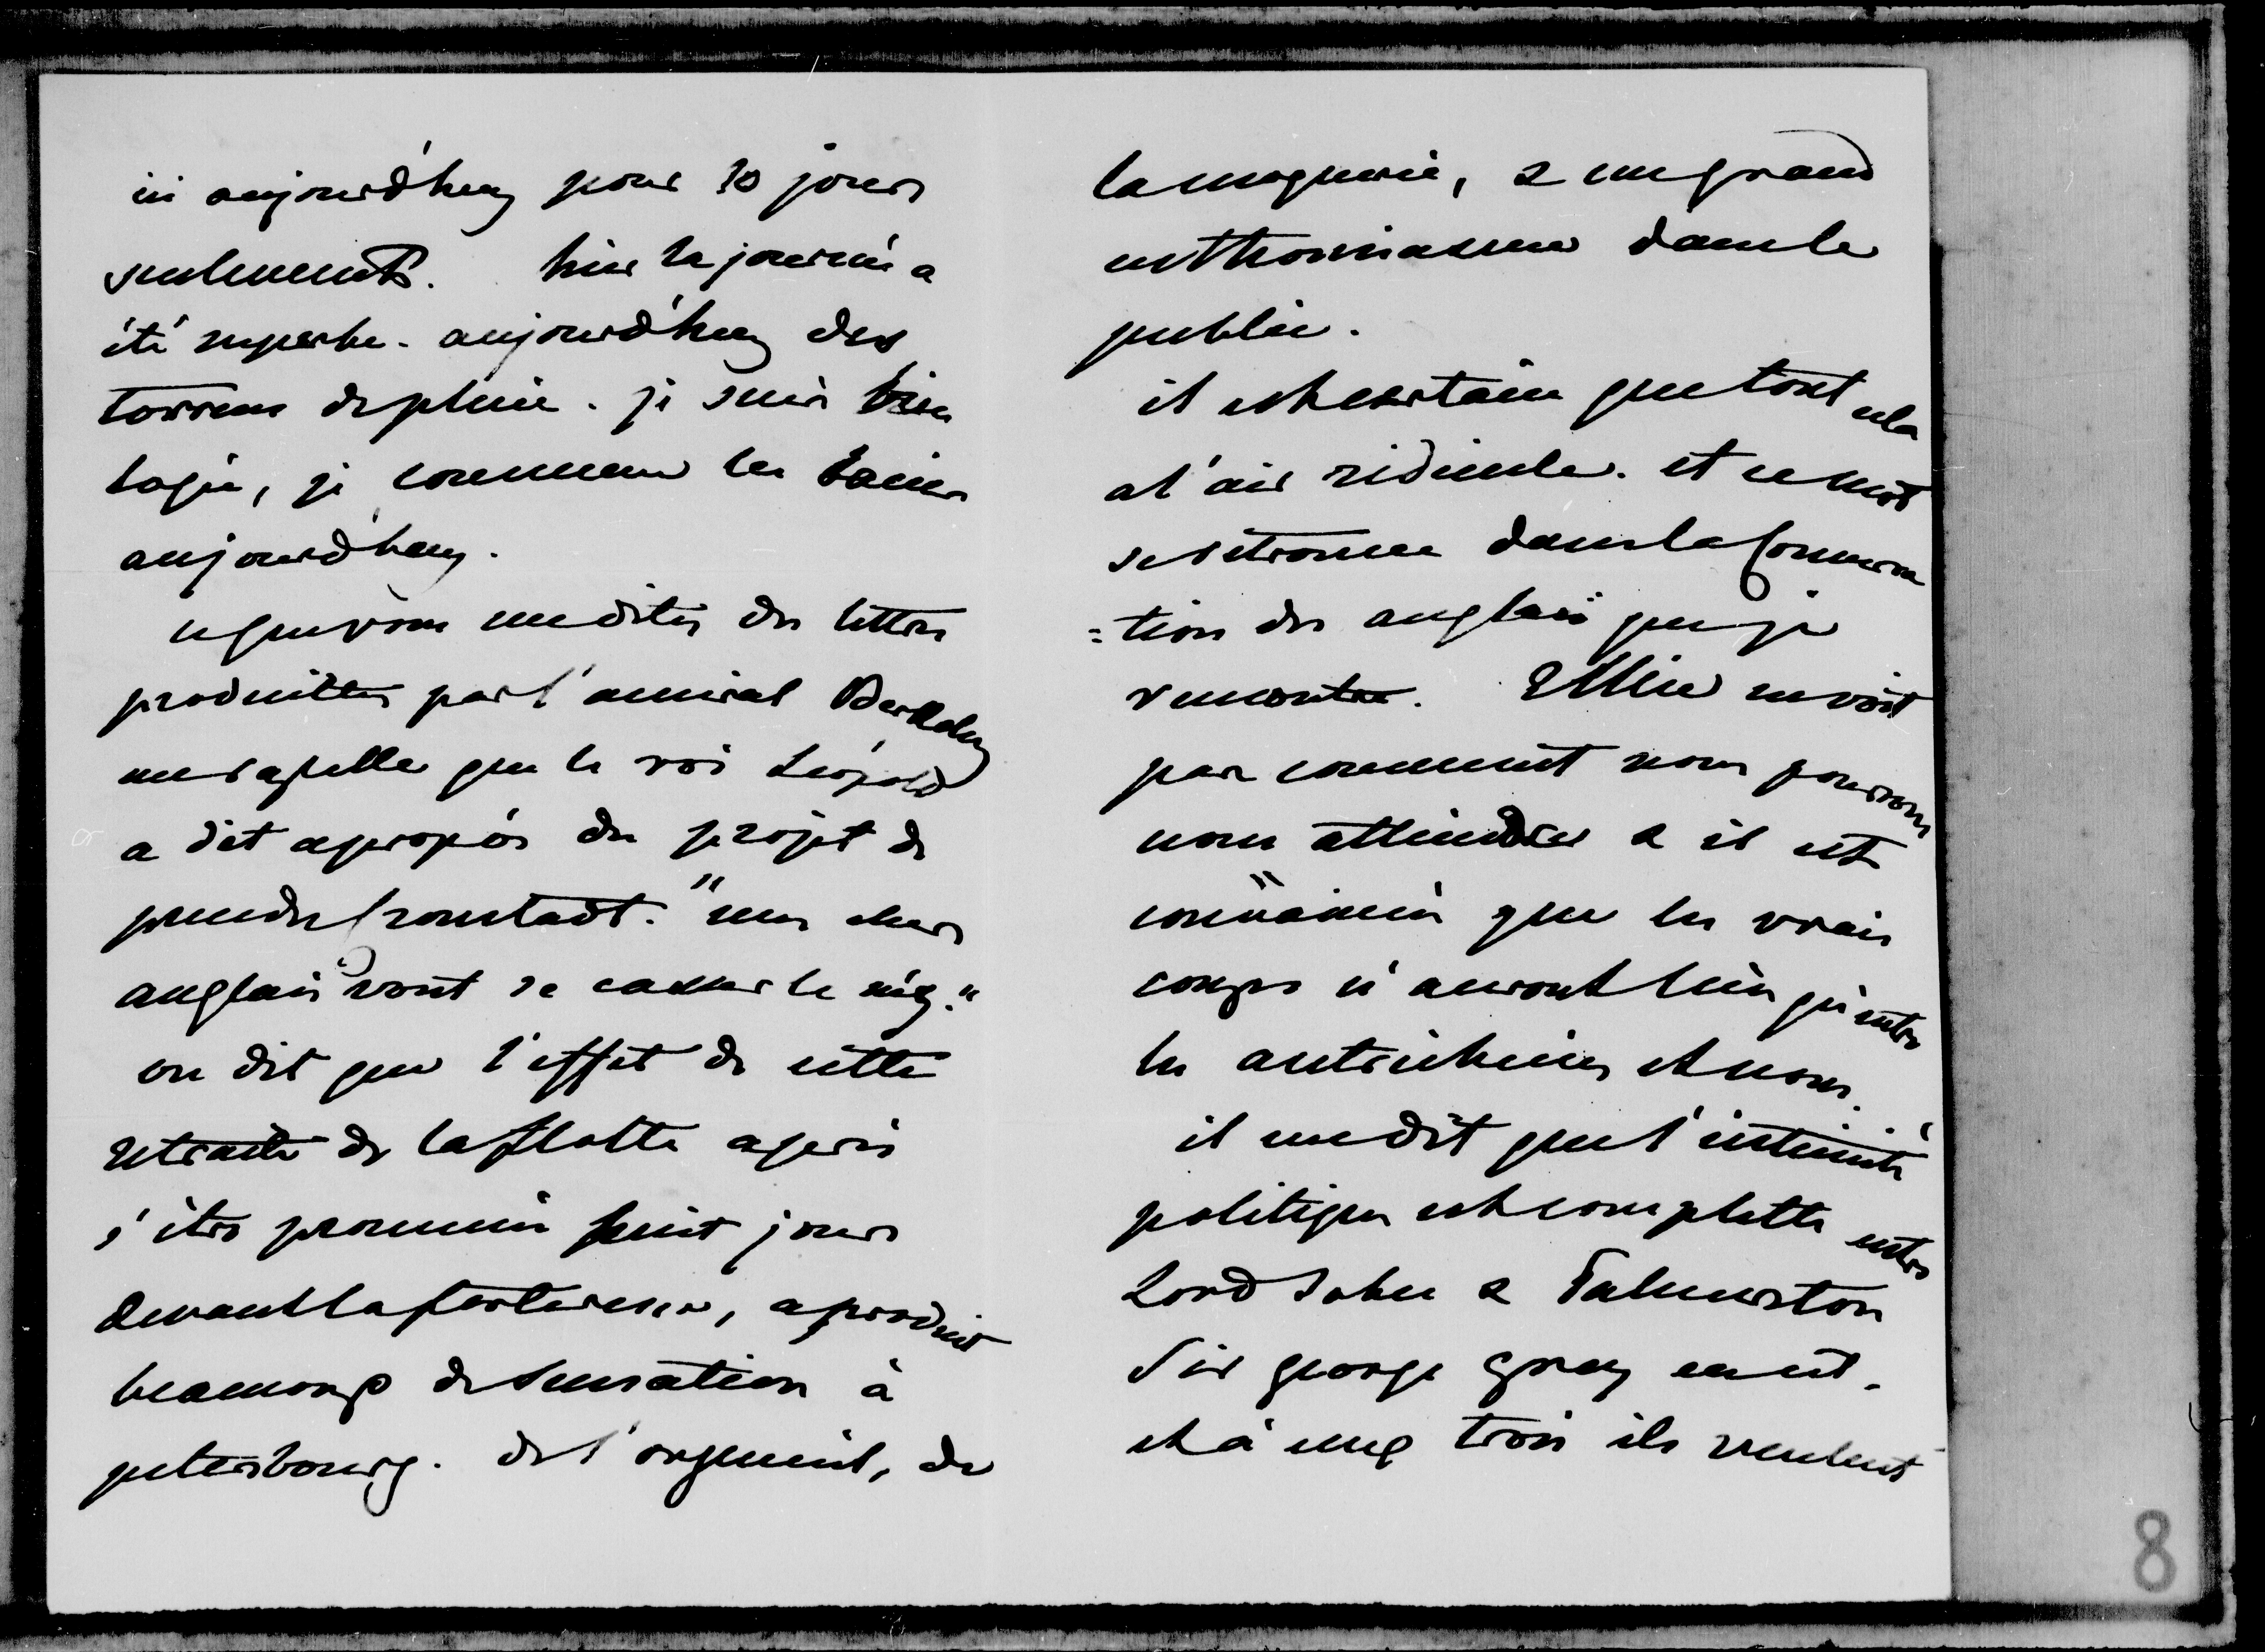 ici aujourd'huy pour 10 jours
seulement. hier la journée a
été superbe. aujourd'huy des
torrens de pluie. je suis bien
logée, je commence les bains
aujourd'huy.
ce que vous me dites des lettres
produittes par l'amiral Berkeley
me rapelle que le roi Léopold
a dit apropós du projet de
prendre Cronstadt. "mes chers
anglais vont se casser le néz."
on dit que l'effet de cette
retraite de la flotte après
s'être promené huit jours
devant la forteresse, a produit
beaucoup de sensation à
petersbourg. de l'orgueil, de
la moquerie, & un grand
enthousiasme dans le
public.
il est certain que tout cela
a l'air ridicule. et ce mot
se retrouve dans la Conversa
=tion des anglais que je
rencontre. Ellice ne voit
pas comment nous pourrons
nous atteindre & il est
convaincu que les vrais
coups n'auront lieu qu'entre
les autrichiens et nous.
il me dit que l'intimité
politique est complette entre
Lord John & Palmerston
Sir george grey en est.
et à eux trois ils veulent
8